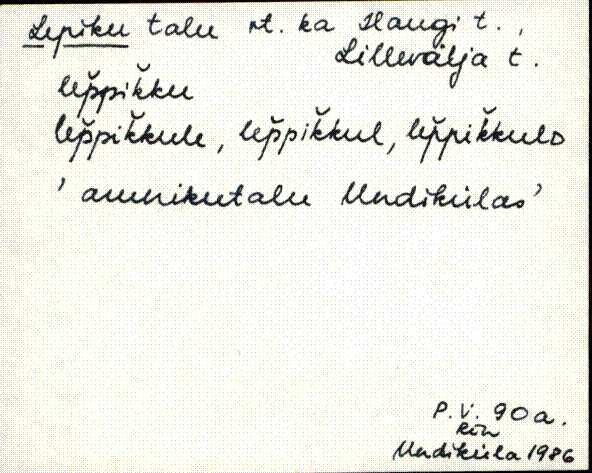 Lepiku talu vt. ka Haugi t.,
Lillevälja t.
lep̆pik̆ku
lep̆pik̆kule, lep̆pik̆kul, lep̆pik̆kulo
' asunikutalu Undikülas'
P.V. 90a.
Undiküla 1986